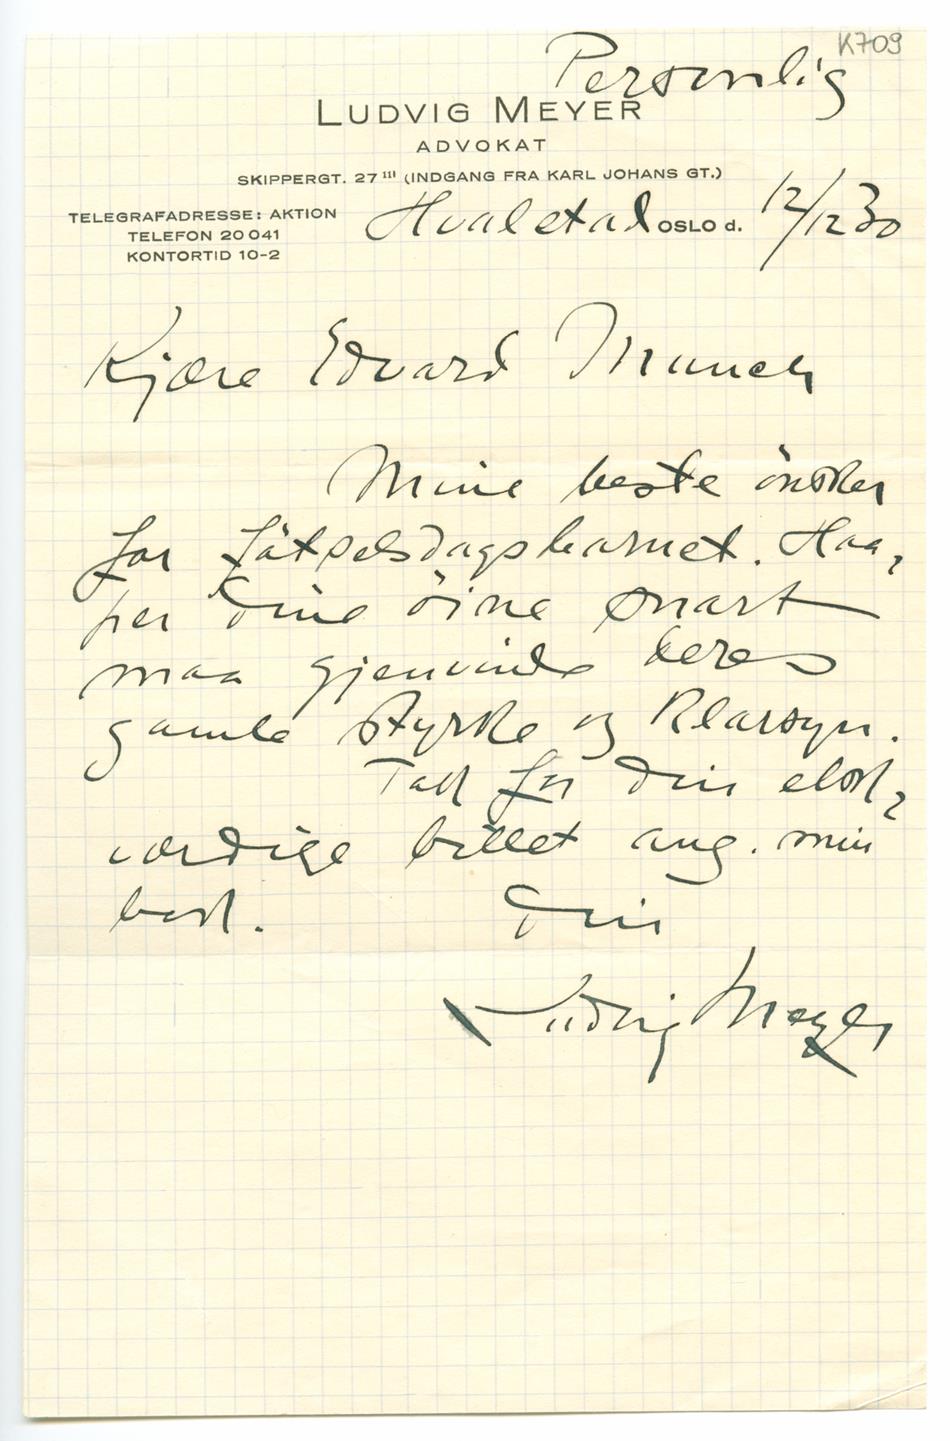 K709
Personlig
LUDVIG MEYER
ADVOKAT
SKIPPERGT. 27 III (INDGANG FRA KARL JOHANS GT.)
TELEGRAFADRESSE: AKTION
TELEFON 20041
KONTORTID 10-2
Hvalstad OSLO d. 12/12 30
Kjære Edvard Munch
Mine beste önsker
for fötselsdagsbarnet. Haa-
per dine öine snart
maa gjenvinde deres
gamle styrke og klarsyn.
Takk for din elsk-
værdige billet ang. min
bok. Din
Ludvig Meyer